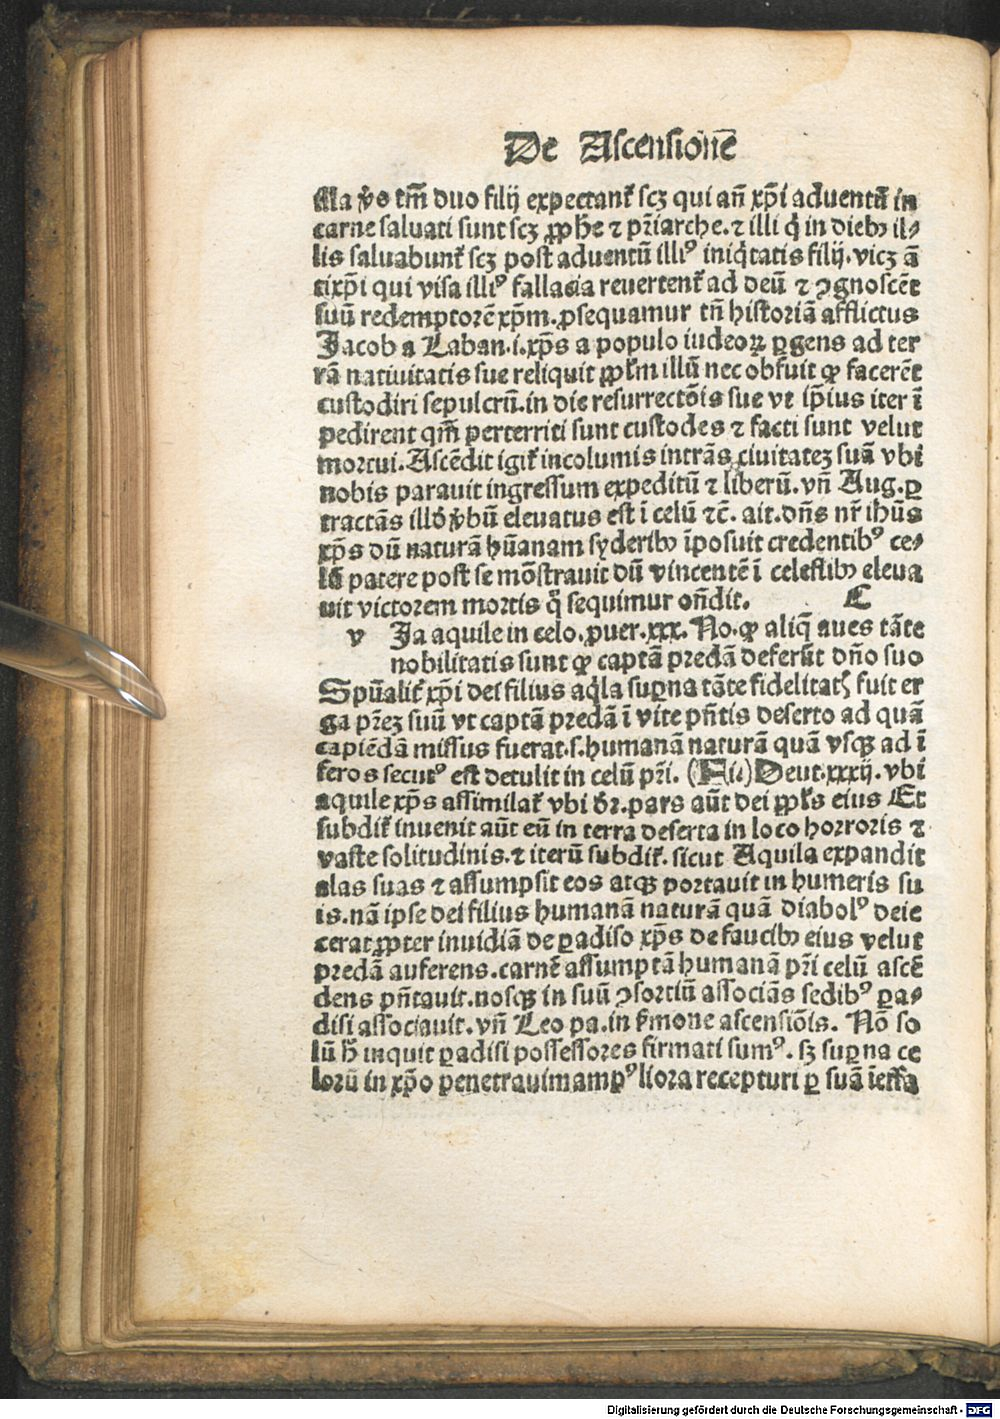 De Ascensionē
Ma v̓o tm̄ duo filij expectant᷑ scꝫ qui an̄ xp̄i aduentū in
carne saluati sunt scꝫ ꝓph̄e ⁊ pr̄iarche. ⁊ illi q̇ in dieb⁹ il⸗
lis saluabunt᷑ scꝫ post aduentū illi⁹ iniq̇tatis filij. vicꝫ ā
tixp̄i qui visa illi⁹ fallacia reuertent᷑ ad deū ⁊ ꝯgnoscēt
suū redemptorē xp̄m. ꝓsequamur tn̄ historiā afflictus
Jacob a Laban .i. xp̄s a populo iudeoꝝ ꝑgens ad ter
rā natiuitatis sue reliquit ppl̓m illū nec obfuit ꝙ facerēt
custodiri sepulcrū. in die resurrectōis sue vt ip̄ius iter ī
pedirent qm̄ perterriti sunt custodes ⁊ facti sunt velut
mortui. Ascēdit igit᷑ incolumis intrās ciuitateꝫ suā vbi
nobis parauit ingressum expeditū ⁊ liberū. vn̄ Aug. ꝑ
tractās illḋ v̓bū eleuatus est ī celū ⁊c̄. ait. dn̄s nr̄ ih̄us
xp̄s dū naturā hūanam syderib⁹ īposuit credentib⁹ ce⸗
lū patere post se mōstrauit dū vincentē ī celestib⁹ eleua
uit victorem mortis q̄ sequimur on̄dit. C
v Ja aquile in celo. ꝓuer. xxx. No. ꝙ aliq̄ aues tāte
nobilitatis sunt ꝙ captā predā deferūt dn̄o suo
Spūalit᷑ xp̄i dei filius aq̇la suꝑna tāte fidelitatꝭ fuit er
ga pr̄eꝫ suū vt captā predā ī vite pn̄tis deserto ad quā
capiēdā missus fuerat .s. humanā naturā quā vsqꝫ ad ī
feros secut⁹ est detulit in celū pr̄i. (Fi.) Deut. xxxij. vbi
aquile xp̄s assimilat᷑ vbi dr̄. pars aūt dei ppl̓s eius Et
subdit᷑ inuenit aūt eū in terra deserta in loco horroris ⁊
vaste solitudinis. ⁊ iterū subdit᷑. sicut Aquila expandit
alas suas ⁊ assumpsit eos atqꝫ portauit in humeris su
is. nā ipse dei filius humanā naturā quā diabol⁹ deie
cerat ꝓpter inuidiā de ꝑadiso xp̄s de faucib⁹ eius velut
predā auferens. carnē assumptā humanā pr̄i celū ascē
dens pn̄tauit. nosqꝫ in suū ꝯsortiū associās sedib⁹ ꝑa⸗
disi associauit. vn̄ Leo pa. in s̓mone ascensiōis. Nō so
lū h̄ inquit ꝑadisi possessores firmati sum⁹. sꝫ suꝑna ce
lorū in xp̄o penetrauimampl⁹iora recepturi ꝑ suā īeffa
Digitalisierung gefördert durch die Deutsche Forschungsgemeinschaft - DFG